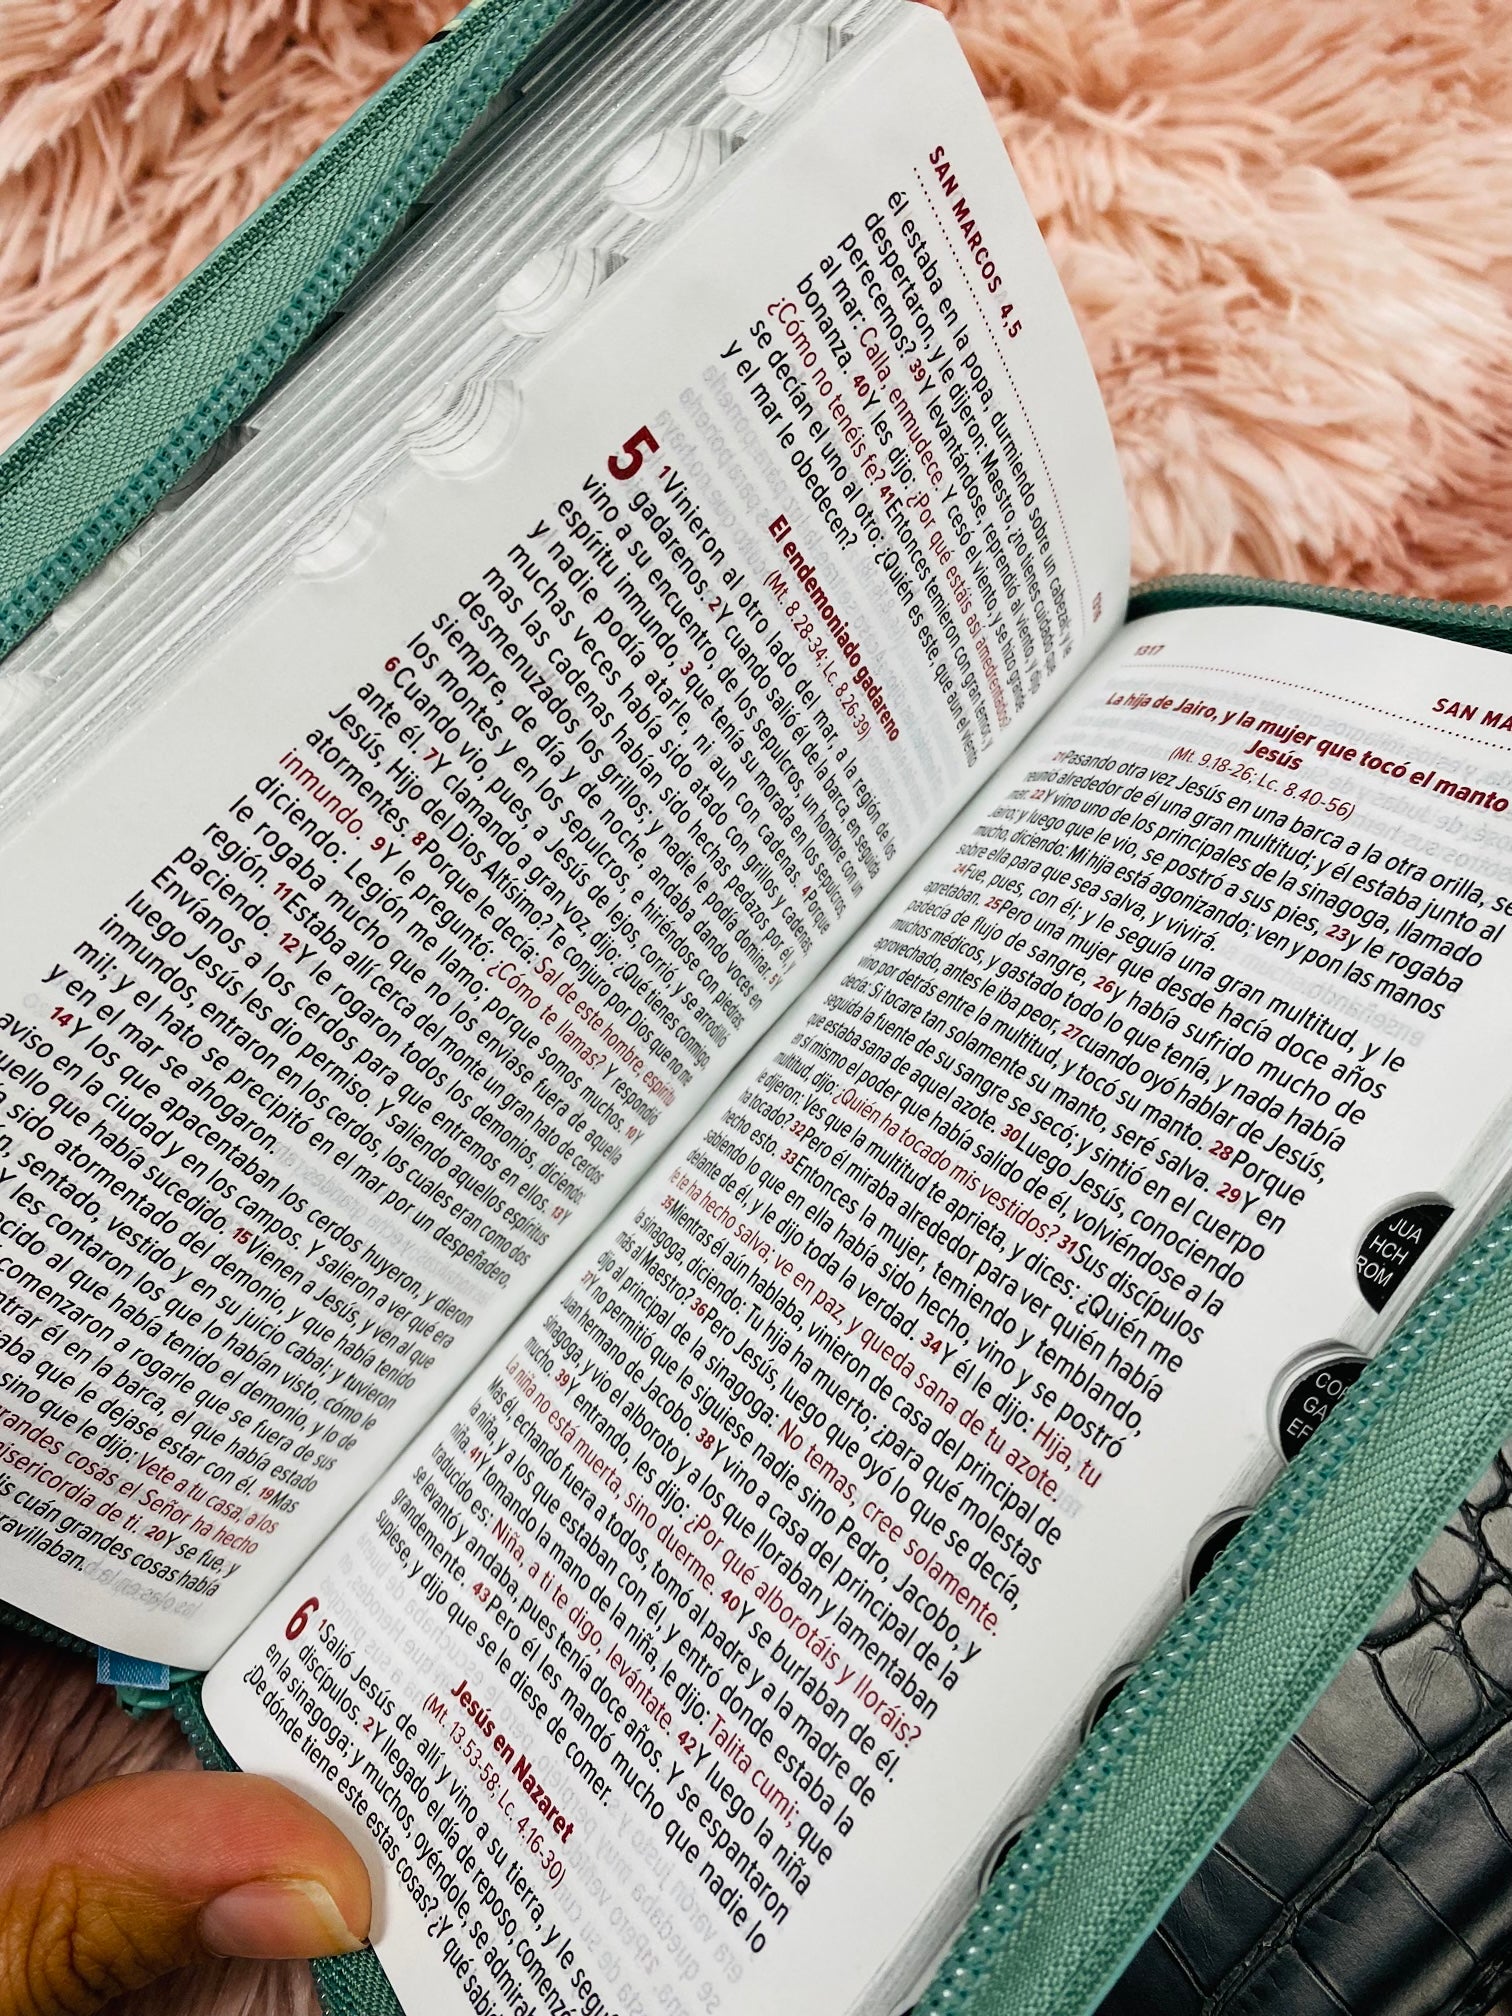 SAN MARCOS 4, 5
él estaba en la popa, durmiendo sobre un cabezal; y le
despertaron, y le dijeron: Maestro, ¿no tienes cuidado que
perecemos? 39Y levantándose, reprendió al viento, y dijo
al mar: Calla, enmudece. Y cesó el viento, y se hizo grande
bonanza. 40Y les dijo: ¿Por qué estáis así amedrentados?
¿Cómo no tenéis fe? 41Entonces temieron con gran temor, y
se decían el uno al otro: ¿Quién es este, que aun el viento
y el mar le obedecen?
El endemoniado gadareno
(Mt. 8.28-34; Lc. 8.26-39)
5 1Vinieron al otro lado del mar, a la región de los
gadarenos. 2Y cuando salió él de la barca, en seguida
vino a su encuentro, de los sepulcros, un hombre con un
espíritu inmundo, 3que tenía su morada en los sepulcros,
y nadie podía atarle, ni aun con cadenas. 4Porque
muchas veces había sido atado con grillos y cadenas,
mas las cadenas habían sido hechas pedazos por él, y
desmenuzados los grillos; y nadie le podía dominar. 5Y
siempre, de día y de noche, andaba dando voces en
los montes y en los sepulcros, e hiriéndose con piedras.
6Cuando vio, pues, a Jesús de lejos, corrió, y se arrodilló
ante él. 7Y clamando a gran voz, dijo: ¿Qué tienes conmigo,
Jesús, Hijo del Dios Altísimo? Te conjuro por Dios que no me
atormentes. 8Porque le decía: Sal de este hombre, espíritu
inmundo. 9Y le preguntó: ¿Cómo te llamas? Y respondió
diciendo: Legión me llamo; porque somos muchos. 10Y
le rogaba mucho que no los enviase fuera de aquella
región. 11Estaba allí cerca del monte un gran hato de cerdos
paciendo. 12Y le rogaron todos los demonios, diciendo:
Envíanos a los cerdos para que entremos en ellos. 13Y
luego Jesús les dio permiso. Y saliendo aquellos espíritus
inmundos, entraron en los cerdos, los cuales eran como dos
mil; y el hato se precipitó en el mar por un despeñadero,
y en el mar se ahogaron.
14Y los que apacentaban los cerdos huyeron, y dieron
aviso en la ciudad y en los campos. Y salieron a ver qué era
había sucedido. 15Vienen a Jesús, y ven al que
sido atormentado del demonio, y que había tenido
sentado, vestido y en su juicio cabal; y tuvieron
Y les contaron los que lo habían visto, cómo le
al que había tenido el demonio, y lo de
comenzaron a rogarle que se fuera de sus
entrar él en la barca, el que había estado
que le dejase estar con él. 19Mas
sino que le dijo: Vete a tu casa, a los
grandes cosas el Señor ha hecho
misericordia de ti. 20Y se fue, y
cuán grandes cosas había
1317
SAN MA
La hija de Jairo, y la mujer que tocó el manto
Jesús
(Mt. 9.18-26; Lc. 8.40-56)
21Pasando otra vez Jesús en una barca a la otra orilla, se
reunió alrededor de él una gran multitud; y él estaba junto al
mar. 22Y vino uno de los principales de la sinagoga, llamado
Jairo; y luego que le vio, se postró a sus pies, 23y le rogaba
mucho, diciendo: Mi hija está agonizando; ven y pon las manos
sobre ella para que sea salva, y vivirá.
24Fue, pues, con él; y le seguía una gran multitud, y le
apretaban. 25Pero una mujer que desde hacía doce años
padecía de flujo de sangre, 26y había sufrido mucho de
muchos médicos, y gastado todo lo que tenía, y nada había
aprovechado, antes le iba peor, 27cuando oyó hablar de Jesús,
vino por detrás entre la multitud, y tocó su manto. 28Porque
decía: Si tocare tan solamente su manto, seré salva. 29Y en
seguida la fuente de su sangre se secó; y sintió en el cuerpo
que estaba sana de aquel azote. 30Luego Jesús, conociendo
en sí mismo el poder que había salido de él, volviéndose a la
multitud, dijo: ¿Quién ha tocado mis vestidos? 31Sus discípulos
le dijeron: Ves que la multitud te aprieta, y dices: ¿Quién me
ha tocado? 32Pero él miraba alrededor para ver quién había
hecho esto. 33Entonces la mujer, temiendo y temblando,
sabiendo lo que en ella había sido hecho, vino y se postró
delante de él, y le dijo toda la verdad. 34Y él le dijo: Hija, tu
fe te ha hecho salva; ve en paz, y queda sana de tu azote.
35Mientras él aún hablaba, vinieron de casa del principal de
la sinagoga, diciendo: Tu hija ha muerto; ¿para qué molestas
más al Maestro? 36Pero Jesús, luego que oyó lo que se decía,
dijo al principal de la sinagoga: No temas, cree solamente.
37Y no permitió que le siguiese nadie sino Pedro, Jacobo, y
Juan hermano de Jacobo. 38Y vino a casa del principal de la
sinagoga, y vio el alboroto y a los que lloraban y lamentaban
mucho. 39Y entrando, les dijo: ¿Por qué alborotáis y lloráis?
La niña no está muerta, sino duerme. 40Y se burlaban de él.
Mas él, echando fuera a todos, tomó al padre y a la madre de
la niña, y a los que estaban con él, y entró donde estaba la
niña. 41Y tomando la mano de la niña, le dijo: Talita cumi; que
traducido es: Niña, a ti te digo, levántate. 42Y luego la niña
se levantó y andaba, pues tenía doce años. Y se espantaron
grandemente. 43Pero él les mandó mucho que nadie lo
supiese, y dijo que se le diese de comer.
Jesús en Nazaret
(Mt. 13.53-58; Lc. 4.16-30)
6 1Salió Jesús de allí y vino a su tierra, y le
discípulos. 2Y llegado el día de reposo,
en la sinagoga; y muchos, oyéndole, se
¿De dónde tiene este estas cosas? ¿Y qué
JUA
HCH
ROM
GA
EF